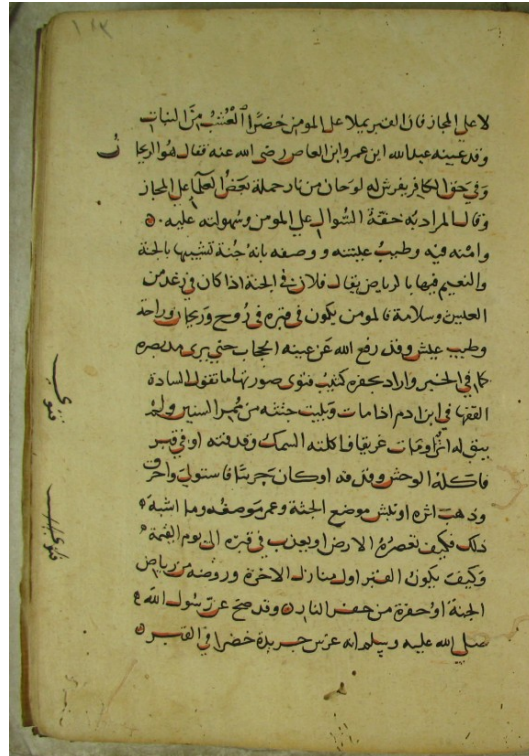 ١١٣
لا على المجاز فان القبر يملا على المومن خضرا العشب من النبات
وقد عينه عبد الله ابن عمرو ابن العاص رضى الله عنه فقال هو الريحا
ن
وفي حق الكافر يفرش له لوحان من نار حملة بعض العلما على المجاز
وقال المراد به خفة السوال على المومن وسهولته عليه
وامنه فيه وطيب عيشته ووصفه بانه جنة تشبيها بالجنة
والنعيم فيها بالرياض يقال فلان في الجنة اذا كان في رغد من
العيش وسلامة فالمومن يكون في قبره في روح وريحان وراحة
وطيب عيش وقد رفع الله عن عينيه الحجاب حتى يرى مد بصره
كما في الخبر واراد بحفرة
فتوى صورتها ما تقول السادة
الفقها في ابن ادم اذا مات وبليت جثته من ممر السنين ولم
يبق له اثرا ومات غريقا فاكلته السمك وقد فنته او في قبر
فاكله الوحش او كان فاستولى واحرق
وذهب اثره او نبش موضع الجثة وعمر موضعه وما اشبه
ذلك فكيف تعصره الارض او يعذب في قبره الى يوم القيمة
وكيف يكون القبر اول منازل الاخرة وروضه من رياض
الجنة او حفرة من حفر النار وقد صح عن رسول الله
صلى الله عليه وسلم انه غرس جريدة خضرا في القبر
فتوى